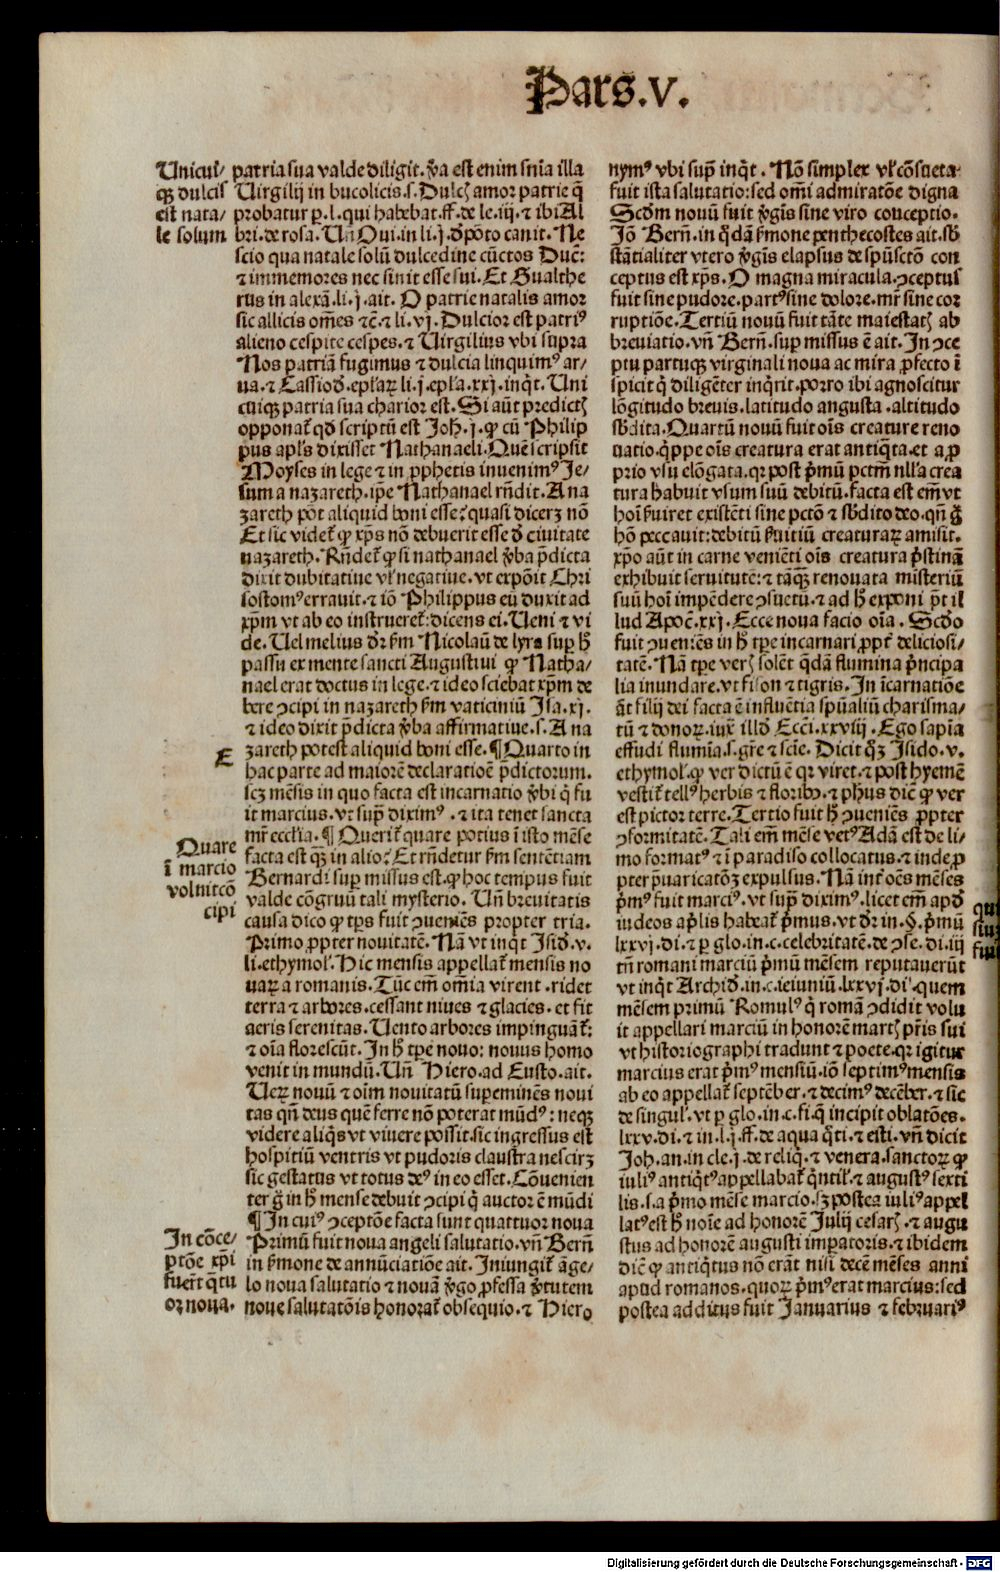 Pars.V.
Unicui-
qꝫ dulcis
est nata-
le solum
patria sua valde diligit. v̾a est enim sn̄ia illa
Uirgilij in bucolicis.s. Dulcꝭ amor patrie q̄
probatur ꝑ.l. qui habebat.ff.de le.iij.⁊ ibi Al
bri.de rosa. Un̄ Oui.in li.j.d̾ pōto canit. Ne
scio qua natale solū dulcedine cūctos Duc̄:
⁊ immemores nec sinit esse sui. Et Gualthe
rus in alexā.li.j.ait. O patrie natalis amor
sic allicis om̄es ⁊c̄.⁊ li.vj. Dulcior est patriꝰ
alieno cespite cespes.⁊ Uirgilius vbi supra
Nos patriā fugimus ⁊ dulcia linquimꝰ ar-
ua.⁊ Cassiod̾.epl'aꝝ li.j.epl'a.xxj.inq̄t. Uni
cuiqꝫ patria sua charior est. Si aūt predictꝭ
opponat̄ qd̾ scriptū est Joh̄.j.ꝙ cū Philip
pus apl's dixisset Nathanaeli. Quē scripsit
Moyses in lege ⁊ in ꝓphetis inuenimꝰ Je-
sum a nazareth. ip̄e Nathanael rn̄dit. A na
zareth pōt aliquid boni esse: quasi dicerꝫ nō
Et sic videt̄ ꝙ xp̄s nō debuerit esse d̾ ciuitate
nazareth. Rn̄det̄ ꝙ si nathanael v̾ba p̄dicta
dixit dubitatiue vl' negatiue. vt expōit Chri
sostomꝰ errauit.⁊ iō Philippus eū duxit ad
xp̄m vt ab eo instrueret̄: dicens ei. Ueni ⁊ vi
de. Uel melius dr̄ s̾m Nicolaū de lyra sup̱ h̾
passu ex mente sancti Augustiui ꝙ Natha-
nael erat doctus in lege.⁊ ideo sciebat xp̄m de
bere ↄcipi in nazareth s̾m vaticiniū Isa.xj.
⁊ ideo dixit p̄dicta v̾ba affirmatiue.s. A na
E
zareth potest aliquid boni esse. ¶ Quarto in
hac parte ad maiorē declaratioē p̄dictorum.
scꝫ mēsis in quo facta est incarnatio v̾bi q̄ fu
it marcius. vt sup̱ diximꝰ.⁊ ita tenet sancta
mr̄ eccl'ia. ¶ Querit̄ quare potius ī isto mēse
Quare
ī marcio
voluit cō
cipi
facta est qꝫ in alio: Et rn̄detur s̾m sentētiam
Bernardi sup̱ missus est. ꝙ hoc tempus fuit
valde cōgruū tali mysterio. Un̄ breuitatis
causa dico ꝙ tp̄s fuit ↄueniēs propter tria.
Primo ꝓpter nouitatē. Nā vt inq̄t Isid̾.v.
li.ethymol'. Hic mensis appellat̄ mensis no
uaꝝ a romanis. Tūc em̄ omia virent. ridet
terra ⁊ arbores. cessant niues ⁊ glacies. et fit
aeris serenitas. Uento arbores impinguāt̄:
⁊ oīa florescūt. In h̾ tꝑe nouo: nouus homo
venit in mundū. Un̄ Hiero. ad Eusto. ait.
Ueꝝ nouū ⁊ oīm nouitatū suꝑeminēs noui
tas qn̄ deus quē ferre nō poterat mūdꝰ: neqꝫ
videre aliq̄s vt viuere possit. sic ingressus est
hospitiū ventris vt pudoris claustra nescirꝫ
sic gestatus vt totus deꝰ in eo esset. Cōuenien
ter g̾ in h̾ mense debuit ↄcipi q̄ auctor ē mūdi
In cōce-
ptōe xp̄i
fuert̄ q̄tu
or noua.
¶ In cuiꝰ ↄceptōe facta sunt quattuor noua
Primū fuit noua angeli salutatio. vn̄ Bern̄
in s̾mone de annūciatiōe ait. Iniungit̄ āge-
lo noua salutatio ⁊ nouā v̾go ꝓfessa v̾tutem
noue salutatōis honorat̄ obsequio.⁊ Hiero
nymꝰ vbi sup̱ inq̄t. Nō simplex vl' cōsueta
fuit ista salutatio: sed om̄i admiratōe digna
Scd̾m nouū fuit v̾gīs sine viro conceptio.
Jō Bern̄. in q̄dā s̾mone penthecostes ait. sb̾
stātialiter vtero v̾gīs elapsus de spūsctō con
ceptus est xp̄s. O magna miracula. ↄceptus
fuit sine pudore. partꝰ sine dolore. mr̄ sine cor
ruptiōe. Tertiū nouū fuit tāte maiestatꝭ ab
breuiatio. vn̄ Bern̄. sup̱ missus ē ait. In ↄce
ptu partuqꝫ virginali noua ac mira ꝓfecto ī
spicit q̄ diligēter inq̄rit. porro ibi agnoscitur
lōgitudo breuis. latitudo angusta. altitudo
sb̾dita. Quartū nouū fuit oīs creature reno
uatio. q̄ppe oīs creatura erat antiq̄ta. et a ꝓ
prio vsu elōgata. qꝛ post p̄mū pctm̄ nll'a crea
tura habuit vsum suū debitū. facta est em̄ vt
hoī s̾uiret existēti sine pctō ⁊ sb̾dito deo. qn̄ g̾
hō peccauit: debitū s̾uitiū creaturaꝝ amisit.
xp̄o aūt in carne veniēti oīs creatura p̄stinā
exhibuit seruitutē: ⁊ tāqꝫ renouata misteriū
suū hoī impēdere ↄsuetū.⁊ ad h̾ exponi p̄t il
lud Apoc̄.xxj. Ecce noua facio oīa. Scd̾o
fuit ↄueniēs in h̾ tꝑe incarnari ꝓpt̄ deliciosi-
tatē. Nā tꝑe verꝭ solēt q̄dā flumina p̄ncipa
lia inundare. vt fison ⁊ tigris. In īcarnatiōe
āt filij dei facta ē influētia spūaliū charisma-
tū ⁊ donoꝝ. iux̄ illd̾ Ecci̅.xxviij. Ego sapīa
effudi flumīa.s.gr̄e ⁊ scīe. Dicit q̄ꝫ Isido.v.
ethymol'. ꝙ ver dictū ē qꝛ viret.⁊ post hyemē
vestit̄ tellꝰ herbis ⁊ floribꝰ.⁊ ph̄us dic̄ ꝙ ver
est pictor terre. Tertio fuit h̾ ↄueniēs ꝓpter
ↄformitatē. Tali em̄ mēse vetꝰ Adā est de li-
mo formatꝰ ⁊ ī paradiso collocatus.⁊ inde ꝓ
pter p̄uaricatōꝫ expulsus. Nā int̄ oēs mēses
p̄mꝰ fuit marciꝰ. vt sup̱ diximꝰ. licet em̄ apd̾
iudeos ap̄lis habeat̄ p̄mus. vt dr̄ in.§.p̄mū
lxxvj.di.⁊ ꝑ glo.in.c.celebritatē.de ↄse.di.iij
tn̄ romani marciū p̄mū mēsem reputauerūt
vt inq̄t Archid̾.in.c.ieiuniū.lxxvj.di'. quem
mēsem primū Romulꝰ q̄ romā ↄdidit volu
it appellari marciū in honorē martꝭ p̄ris sui
vt historiographi tradunt ⁊ poete. qꝛ igitur
marcius erat p̄mꝰ mensiū. iō septimꝰ mensis
ab eo appellat̄ septēber.⁊ decimꝰ decēber.⁊ sic
de singul'. vt ꝑ glo.in.c.fi.q̄ incipit oblatōes.
lxxv.di.⁊ in.l.j.ff.de aqua q̄ti.⁊ esti. vn̄ dicit
Joh.an.in cle.j.de reliq̄.⁊ venera.sanctoꝝ ꝙ
iuliꝰ antiq̄tꝰ appellabat̄ q̄ntil'.⁊ augustꝰ sexti
lis.s.a p̄mo mēse marcio. sꝫ postea iuliꝰ appel
latꝰ est h̾ noīe ad honorē Julij cesarꝭ.⁊ augu
stus ad honorē augusti imꝑatoris.⁊ ibidem
dic̄ ꝙ antiq̄tus nō erāt nisi decē mēses anni
apud romanos. quoꝝ p̄mꝰ erat marcius: sed
postea additus fuit Januarius ⁊ februariꝰ
Digitalisierung gefördert durch die Deutsche Forschungsgemeinschaft - DFG